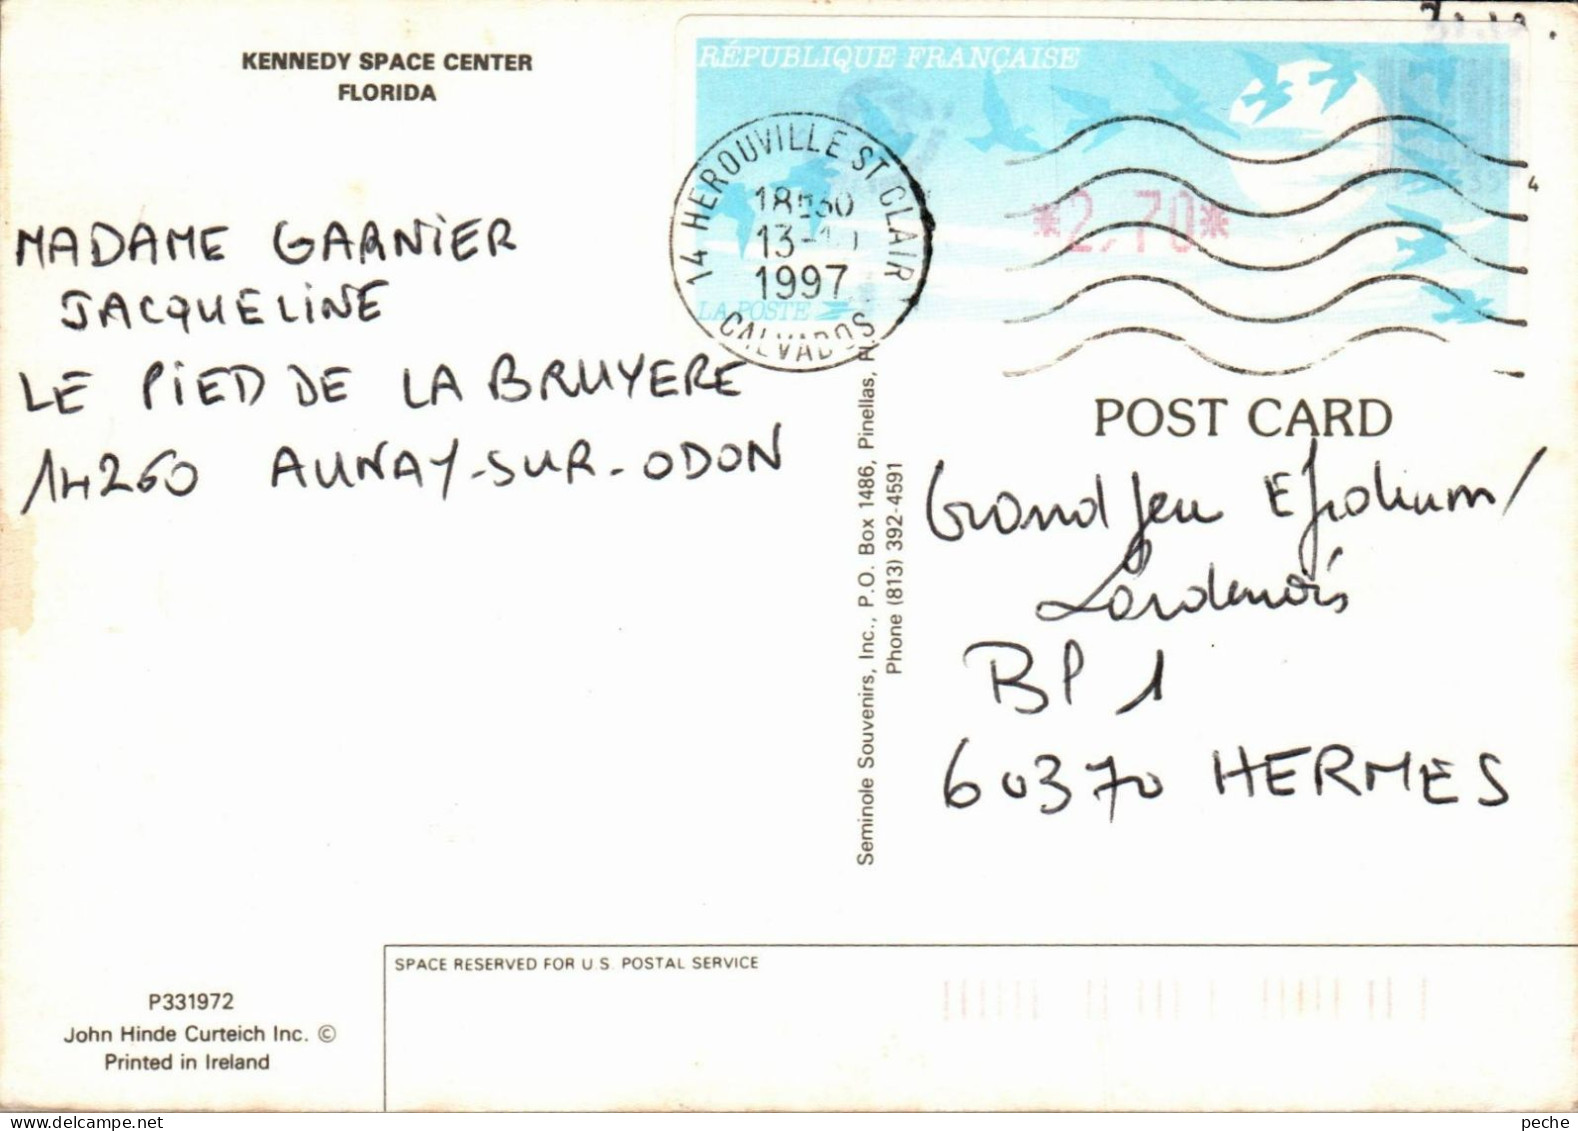 KENNEDY SPACE CENTER
FLORIDA
RÉPUBLIQUE FRANÇAISE
*2,70*
LA POSTE
14 HEROUVILLE ST CLAIR
1997
CALVADOS
MADAME GARNIER
JACQUELINE
LE PIED DE LA BRUYERE
14260 AUNAY-SUR-ODON
Seminole Souvenirs, Inc., P.O. Box 1486, Pinellas,
Phone (813) 392-4591
POST CARD
Grand Jeu
BP 1
60370 HERMES
SPACE RESERVED FOR U.S. POSTAL SERVICE
P331972
John Hinde Curteich Inc. ©
Printed in Ireland
peche